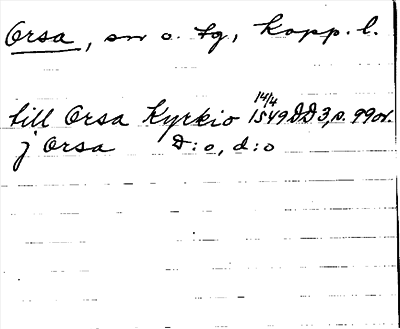 Orsa, sn o. tg, Kopp. l.
14/4
till Orsa Kyrkio 1549 DD 3, s. 99 or.
j Orsa D:o, d:o